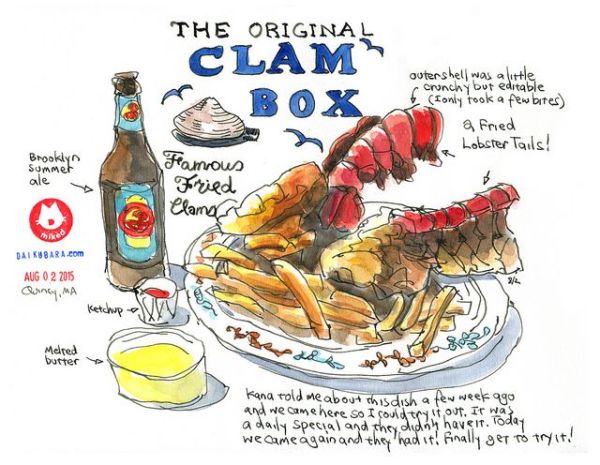 THE ORIGINAL
CLAM
BOX
Famous
Fried
Clams
outer shell was a little
crunchy but editable
(I only took a few bites)
2 Fried
Lobster Tails!
Brooklyn
Summer
ale
miked
DAIKUBARA.com
AUG 02 2015
Quincy, MA
Ketchup
Melted
butter
8/2
Kana told me about this dish a few week ago
and we came here so I could try it out. It was
a daily special and they didn't have it. Today
we came again and they had it! Finally get to try it!